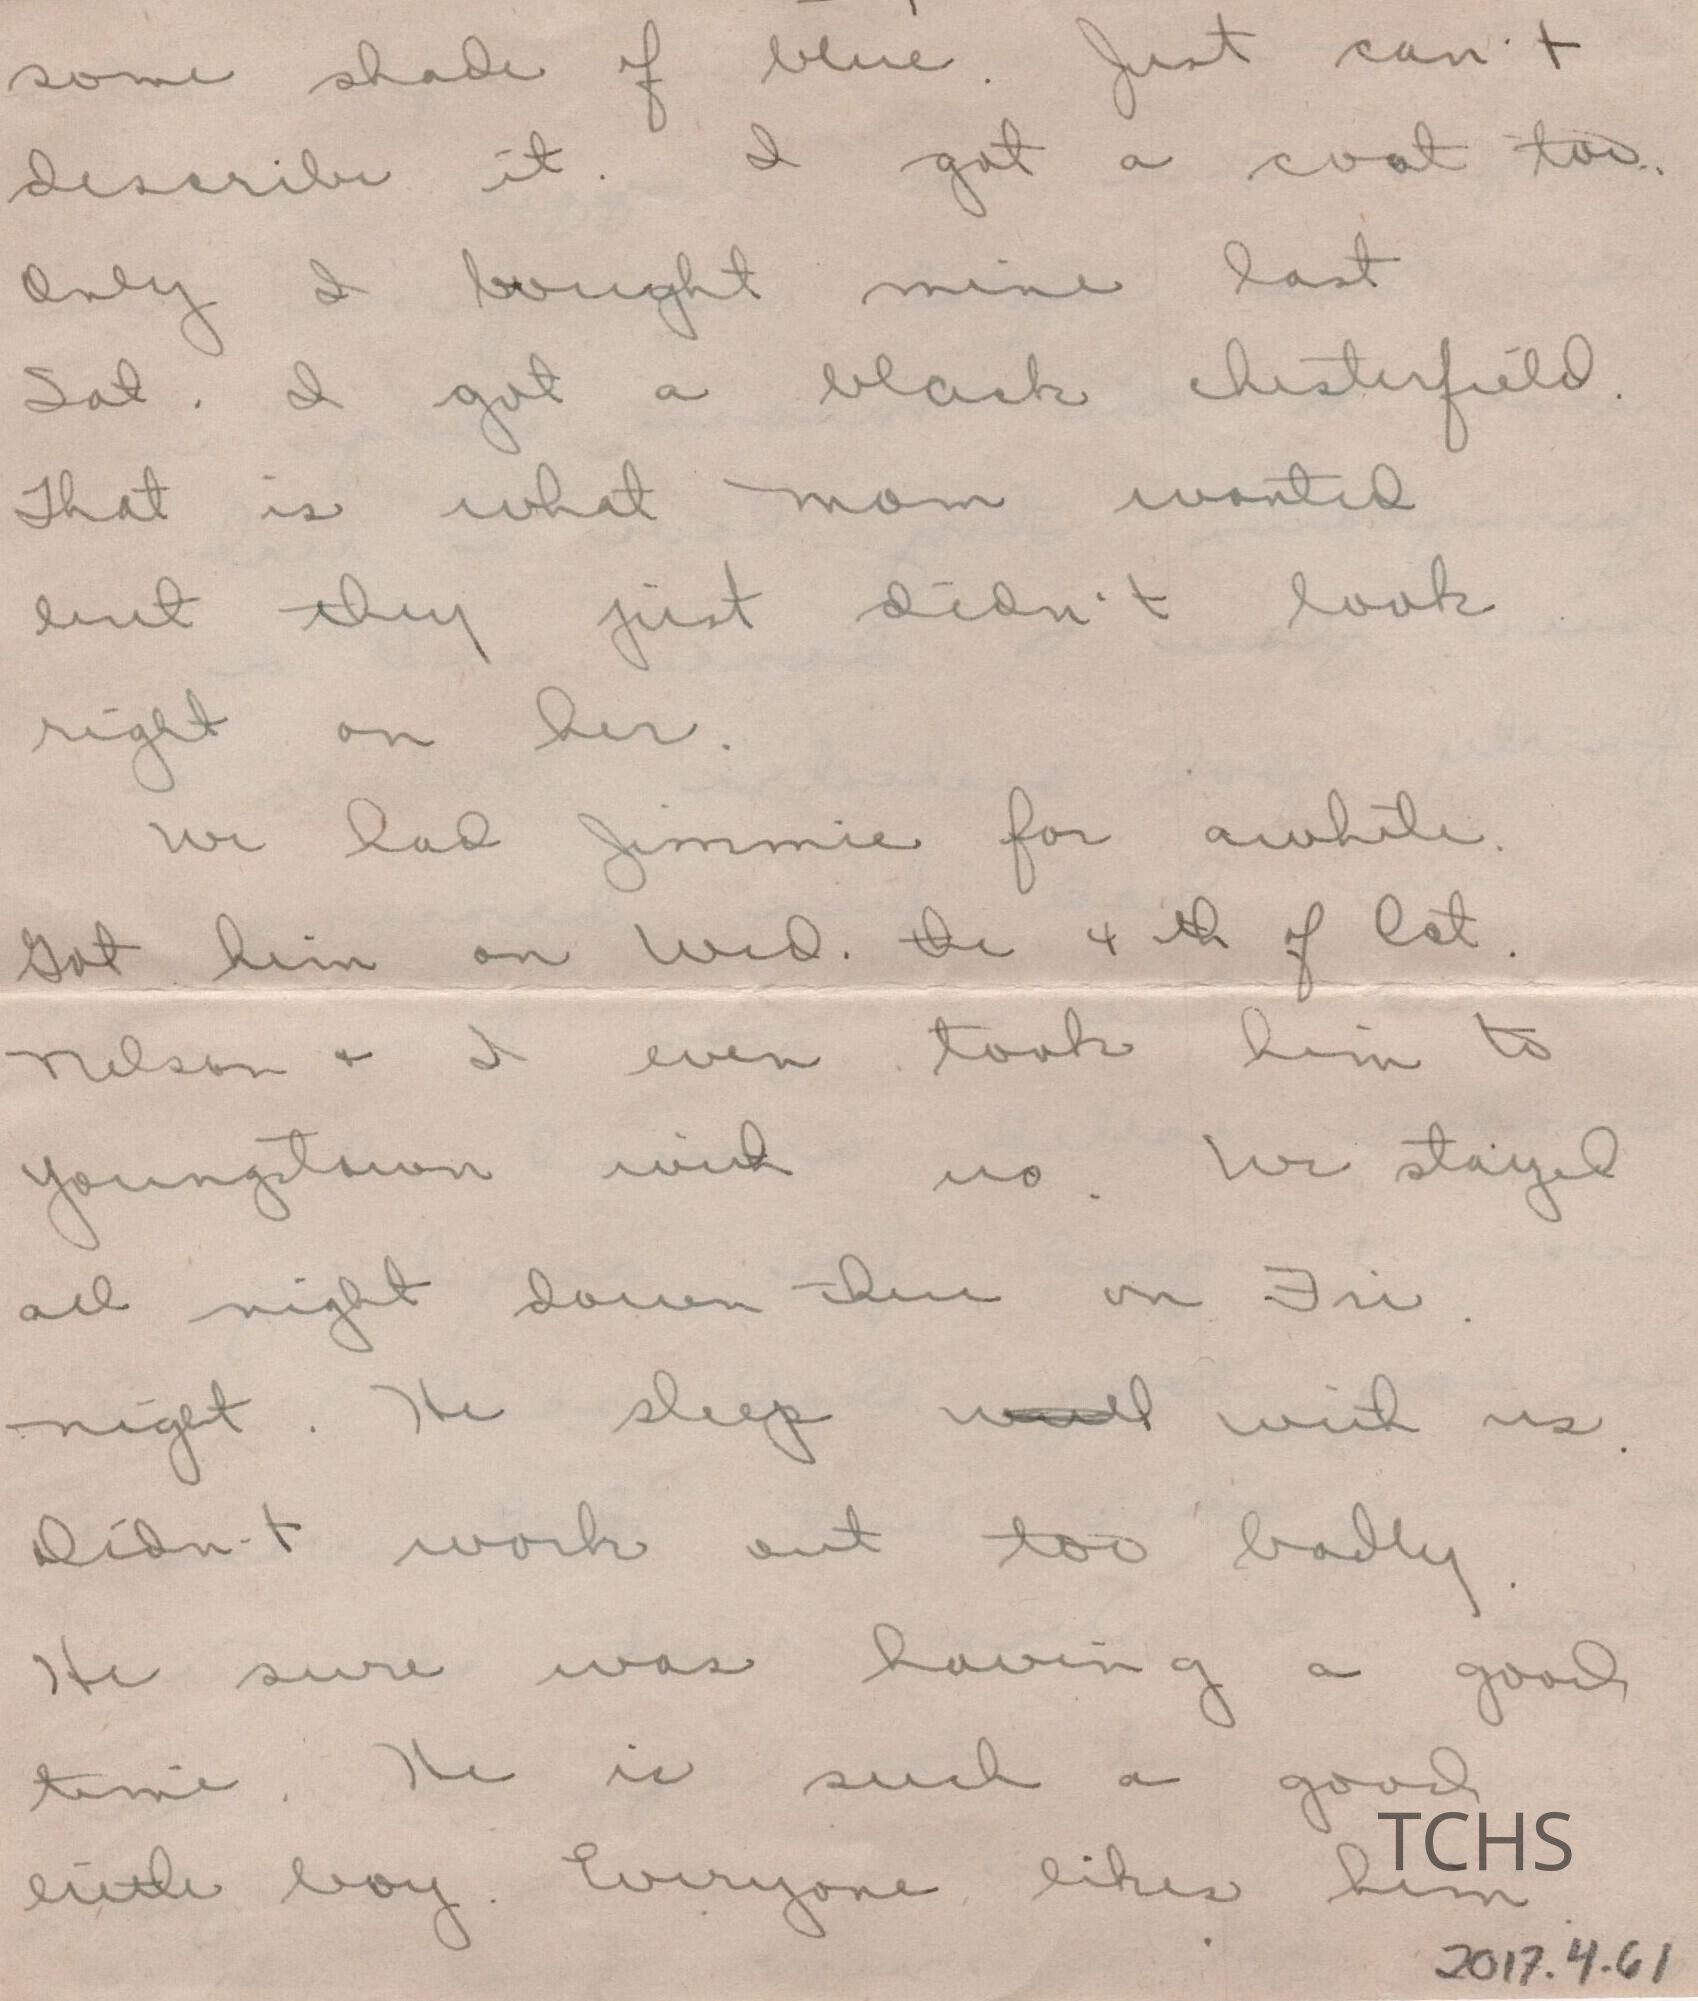 some shade of blue. Just can't
describe it. I got a coat too.
Only I bought mine last
Sat. I got a black chesterfield.
That is what mom wanted
but they just didn't look
right on her.
We had Jimmie for awhile.
Got him on Wed. the 4th of Oct.
Nelson + I even took him to
Youngstown with us. We stayed
all night down there on Fri.
night. He sleep with us.
Didn't work out too badly.
He sure was having a good
time. He is such a good
little boy. Everyone likes him.
TCHS
2017.4.61